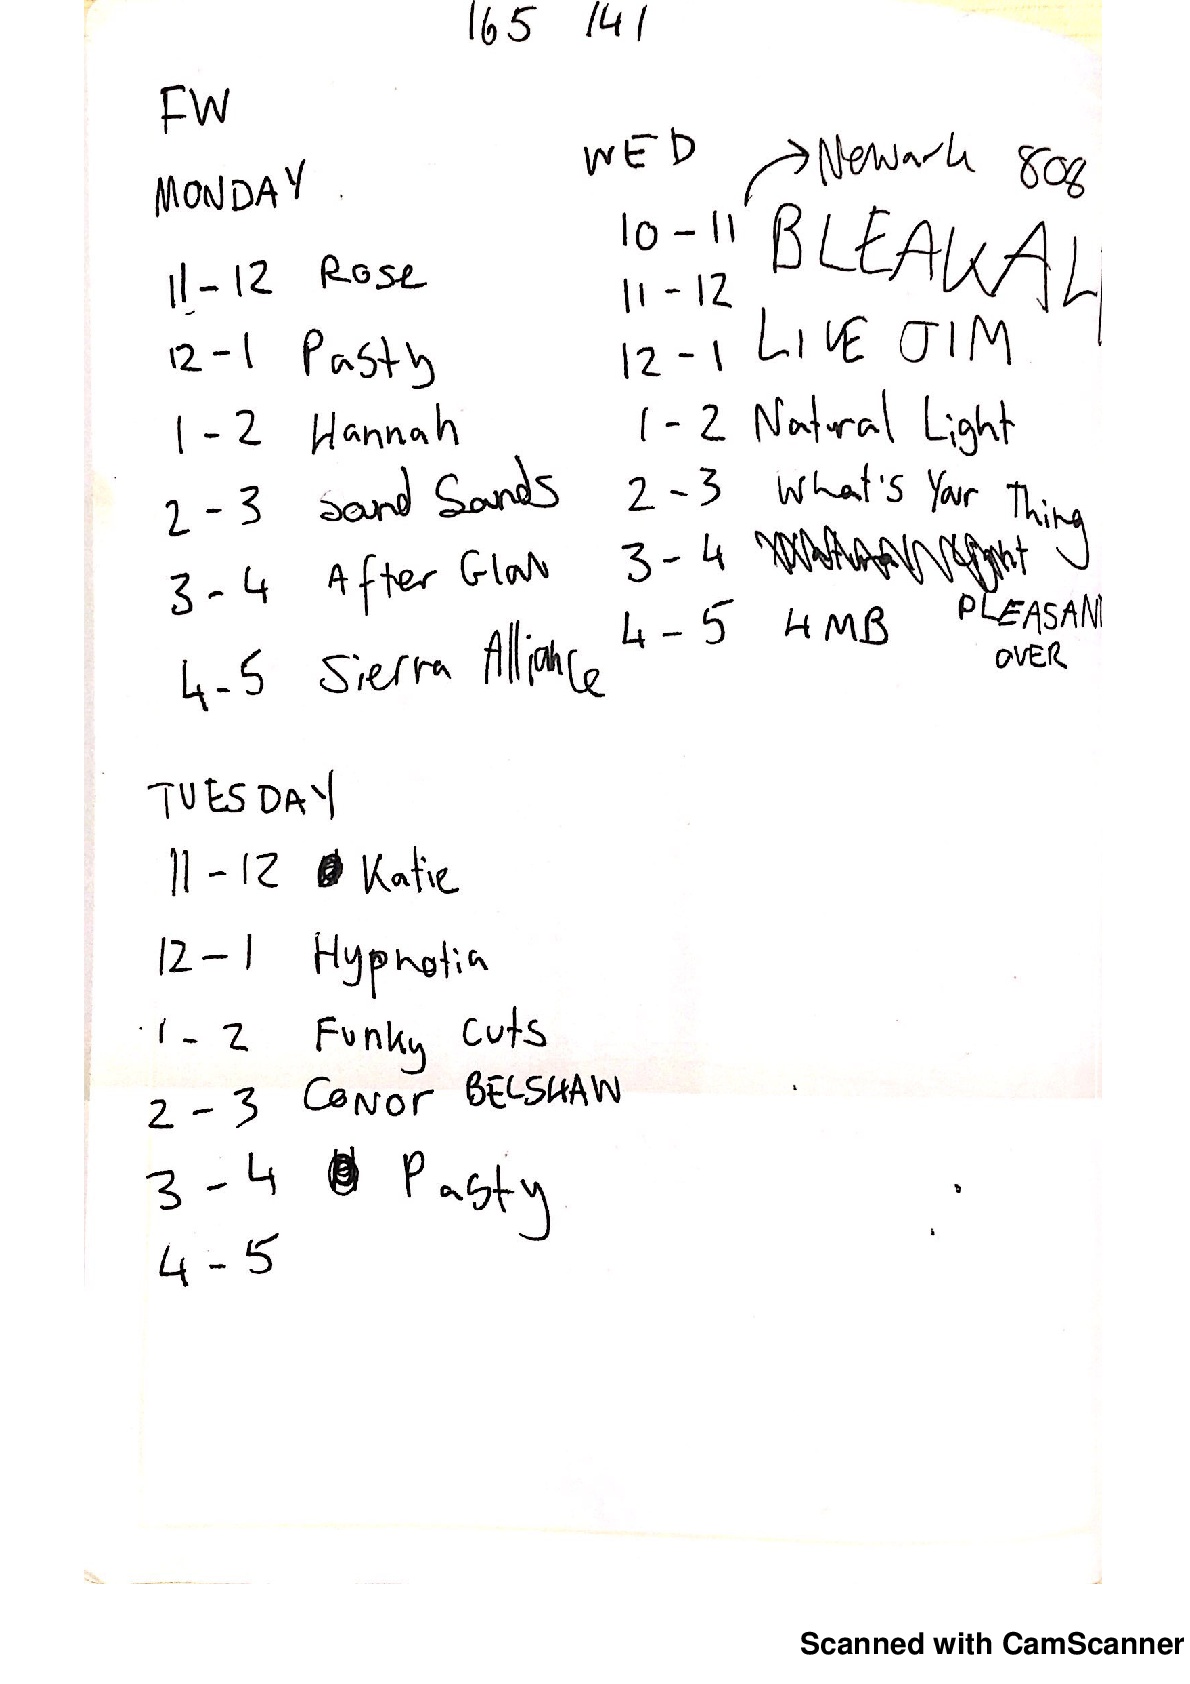 165 141
FW
MONDAY
11-12 Rose
12-1 Pasty
1-2 Hannah
2-3 Sand Sands
3-4 After Glow
4-5 Sierra Alliance
TUESDAY
11-12 Katie
12-1 Hypnotia
1-2 Funky Cuts
2-3 CONOR BELSHAW
3-4 Pasty
4-5
WED
Newark 808
10-11
11-12
12-1 LIVE JIM
1-2 Natural Light
2-3 What's Your Thing
3-4
4-5 4MB
OVER
Scanned with CamScanner